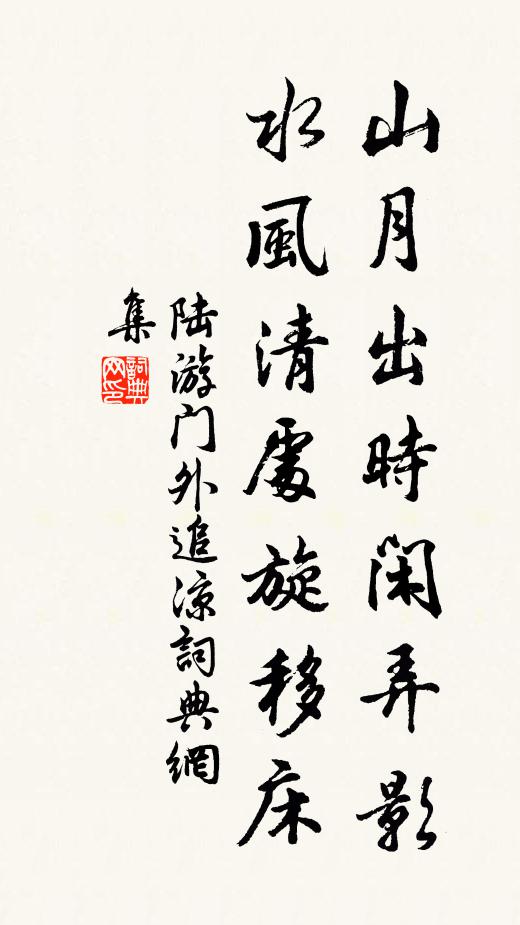 山月出時閑弄影
水風清處旋移床
陸游门外追涼詞典網
集
詞典
网印